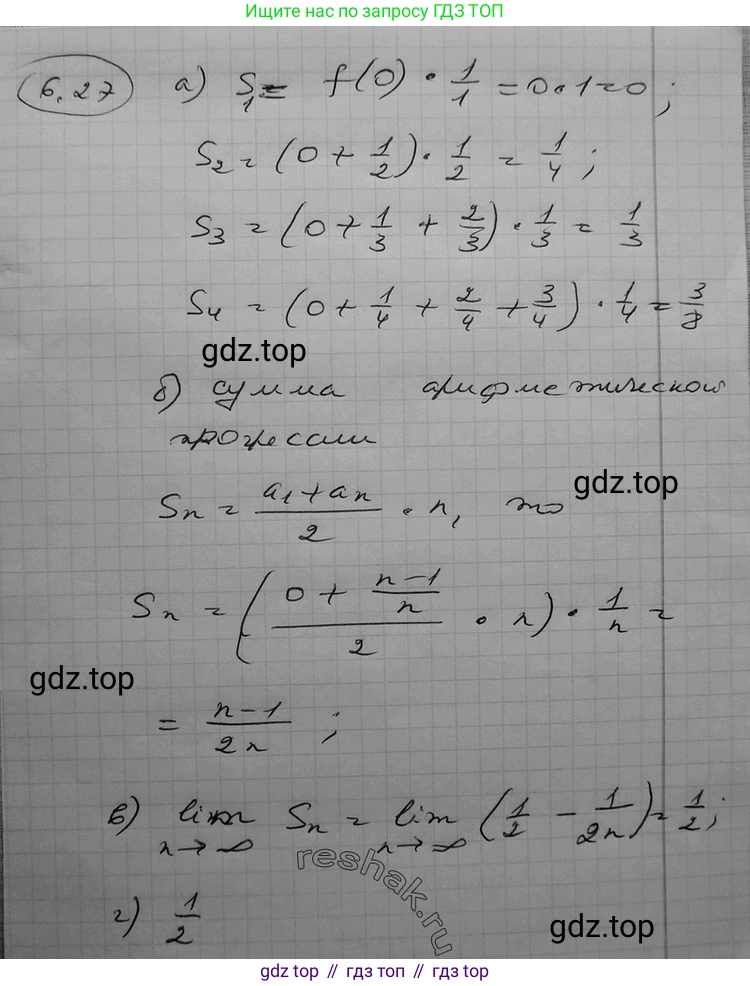 Ищите нас в поиске по запросу ГДЗ ТОП
6.27 а) S₁ = f(0) · 1/1 = 0 · 1 = 0;
S₂ = (0 + 1/2) · 1/2 = 1/4;
S₃ = (0 + 1/3 + 2/3) · 1/3 = 1/3
S₄ = (0 + 1/4 + 2/4 + 3/4) · 1/4 = 3/8
gdz.top
б) сумма арифметической
прогрессии
gdz.top
Sₙ = (a₁ + aₙ)/2 · n, то
Sₙ = ((0 + (n-1)/n)/2 · n) · 1/n =
gdz.top
= (n-1)/2n ;
в) lim n→∞ Sₙ = lim n→∞ (1/2 - 1/2n) = 1/2;
reshak.ru
г) 1/2
gdz.top
gdz.top // гдз топ // gdz.top